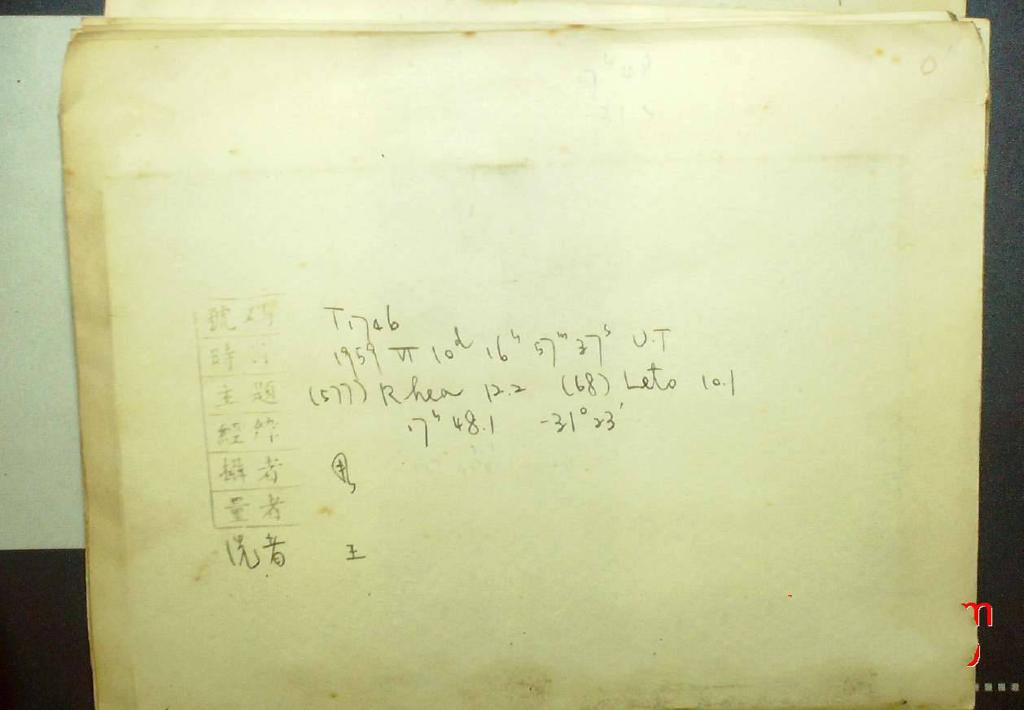 號碼 T1746
時刻 1959 VI 10ᵈ 16ʰ 57ᵐ 37ˢ U.T
主題 (577) Rhea 12.2 (68) Leto 10.1
經緯 17ʰ 48.1 -31° 23'
攝者
量者
洗者 王